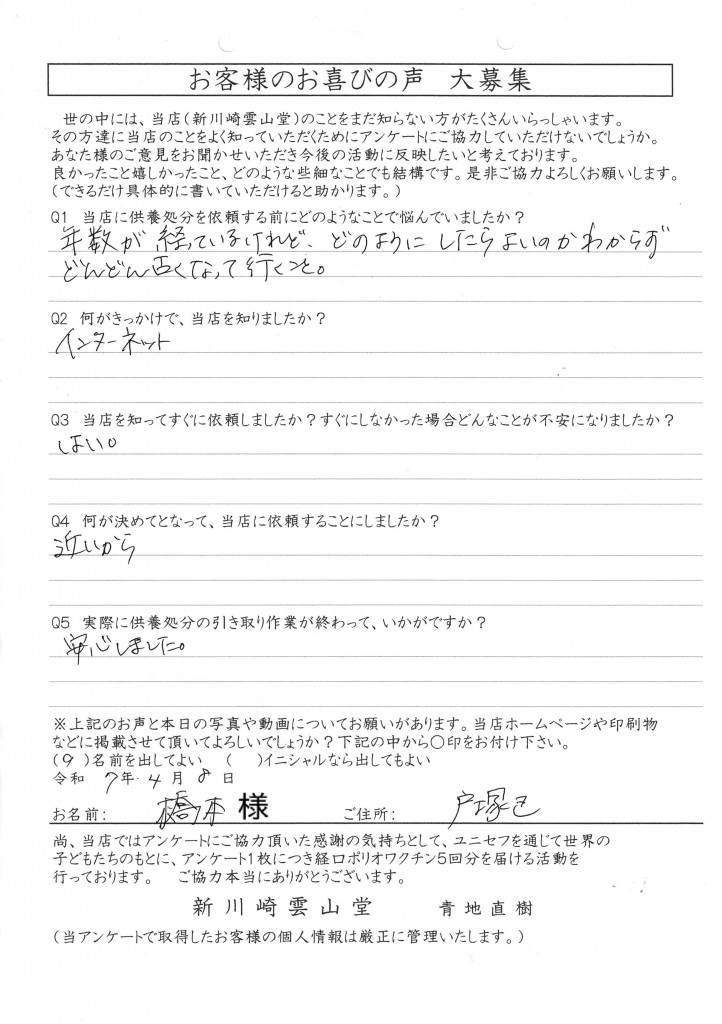 お客様のお喜びの声　大募集
世の中には、当店(新川崎雲山堂)のことをまだ知らない方がたくさんいらっしゃいます。
その方達に当店のことをよく知っていただくためにアンケートにご協力していただけないでしょうか。
あなた様のご意見をお聞かせいただき今後の活動に反映したいと考えております。
良かったこと嬉しかったこと、どのような些細なことでも結構です。是非ご協力よろしくお願いします。
(できるだけ具体的に書いていただけると助かります。)
Q1　当店に供養処分を依頼する前にどのようなことで悩んでいましたか？
年数が経っているけれど、どのようにしたらよいのかわからず
どんどん古くなって行くこと。
Q2　何がきっかけで、当店を知りましたか？
インターネット
Q3　当店を知ってすぐに依頼しましたか？すぐにしなかった場合どんなことが不安になりましたか？
はい。
Q4　何が決めてとなって、当店に依頼することにしましたか？
近いから
Q5　実際に供養処分の引き取り作業が終わって、いかがですか？
安心しました。
※上記のお声と本日の写真や動画についてお願いがあります。当店ホームページや印刷物
などに掲載させて頂いてよろしいでしょうか？下記の中から〇印をお付け下さい。
(○)名前を出してよい　(　)イニシャルなら出してもよい
令和　7年　4月　8日
お名前：　橋本　様　ご住所：　戸塚区
尚、当店ではアンケートにご協力頂いた感謝の気持ちとして、ユニセフを通じて世界の
子どもたちのもとに、アンケート1枚につき経口ポリオワクチン5回分を届ける活動を
行っております。　ご協力本当にありがとうございます。
新川崎雲山堂　青地直樹
(当アンケートで取得したお客様の個人情報は厳正に管理いたします。)